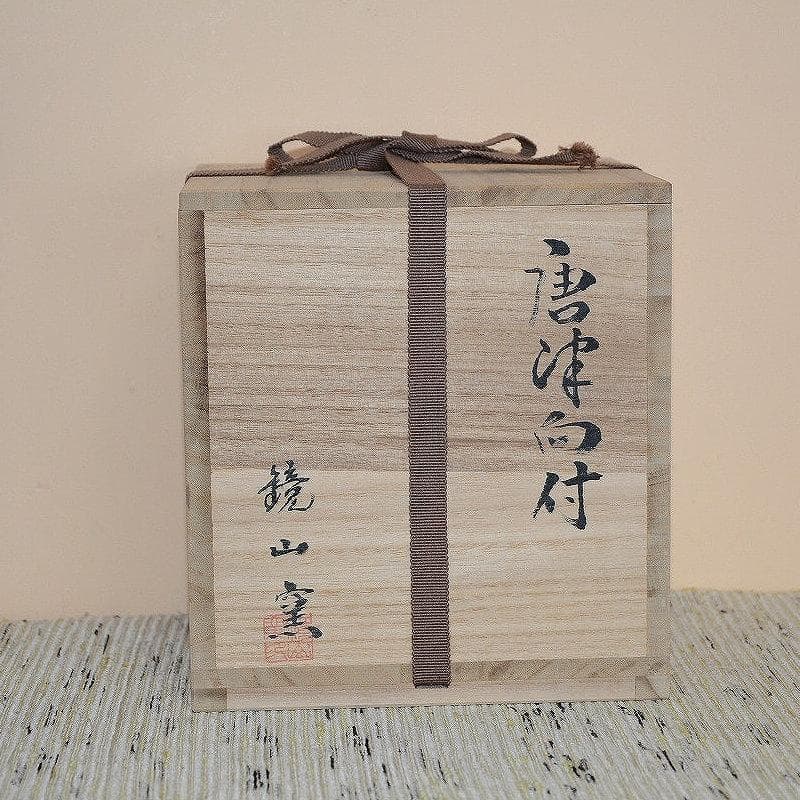 唐津向付
鏡山窯